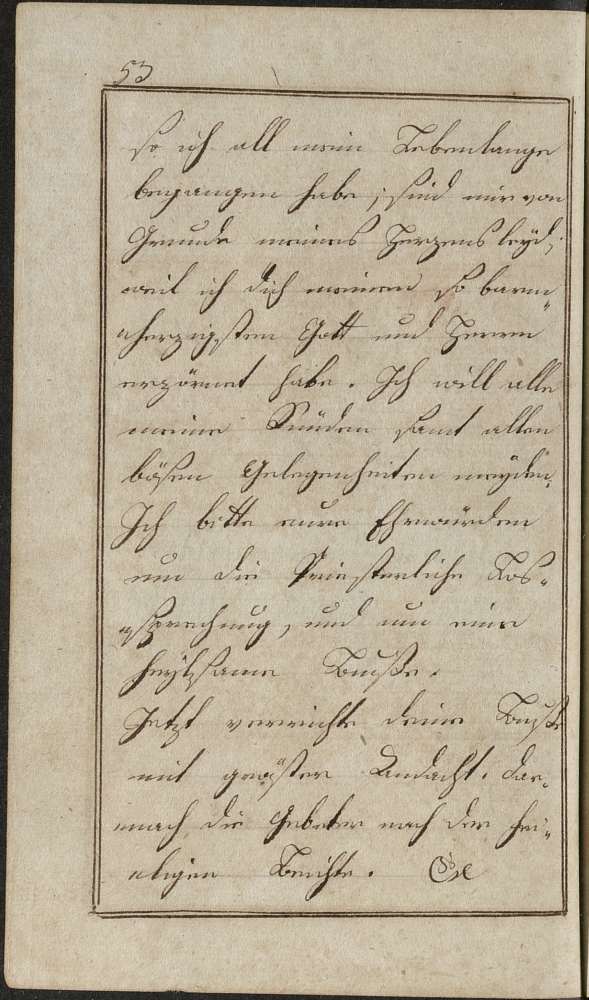 53
so ich all mein Lebenlange
begangen habe, sind mir von
Grunde meines Herzens leyd,
weil ich dich meinen so barm„
„herzigsten Gott und Herren
erzörnet habe. Ich will alle
meine Sünden samt allen
bösen Gelegenheiten meyden.
Ich bitte eure Ehrwürden
um die Priesterliche Los„
„sprechung, und um eine
heylsame Busse.
Jetzt verrichte deine Buss
mit gröster Andacht. Dar„
„nach die Gebeter nach der hei„
„ligen Beichte.